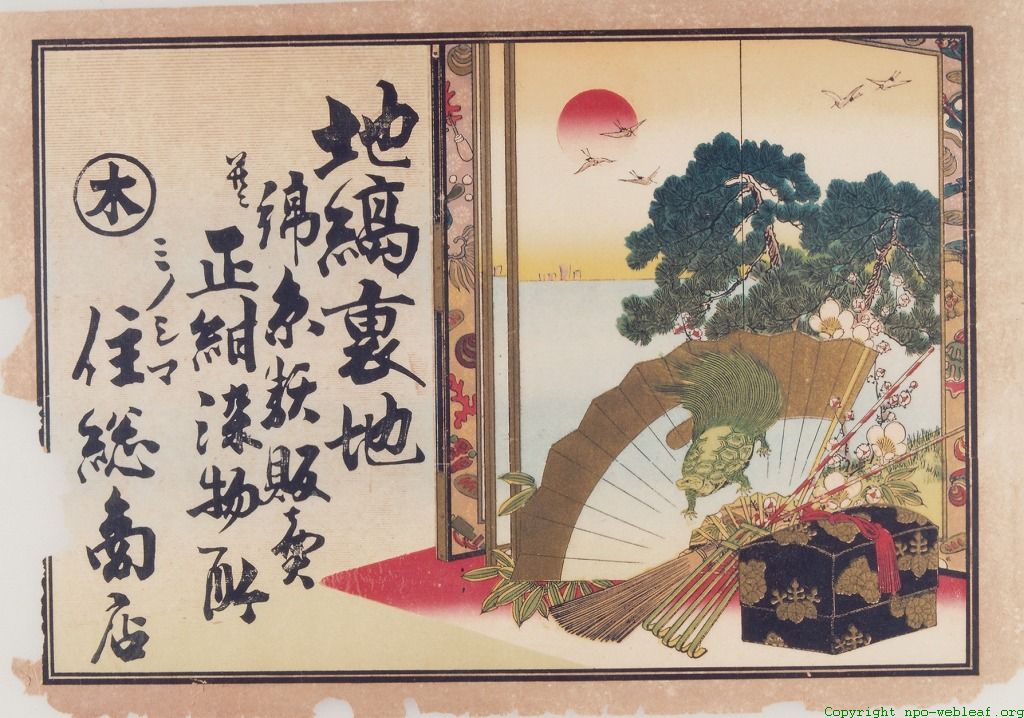 地縞裏地
綿糸類販売
并ニ
正紺染物所
木
ミノシマ
住総商店
Copyright npo-webleaf.org